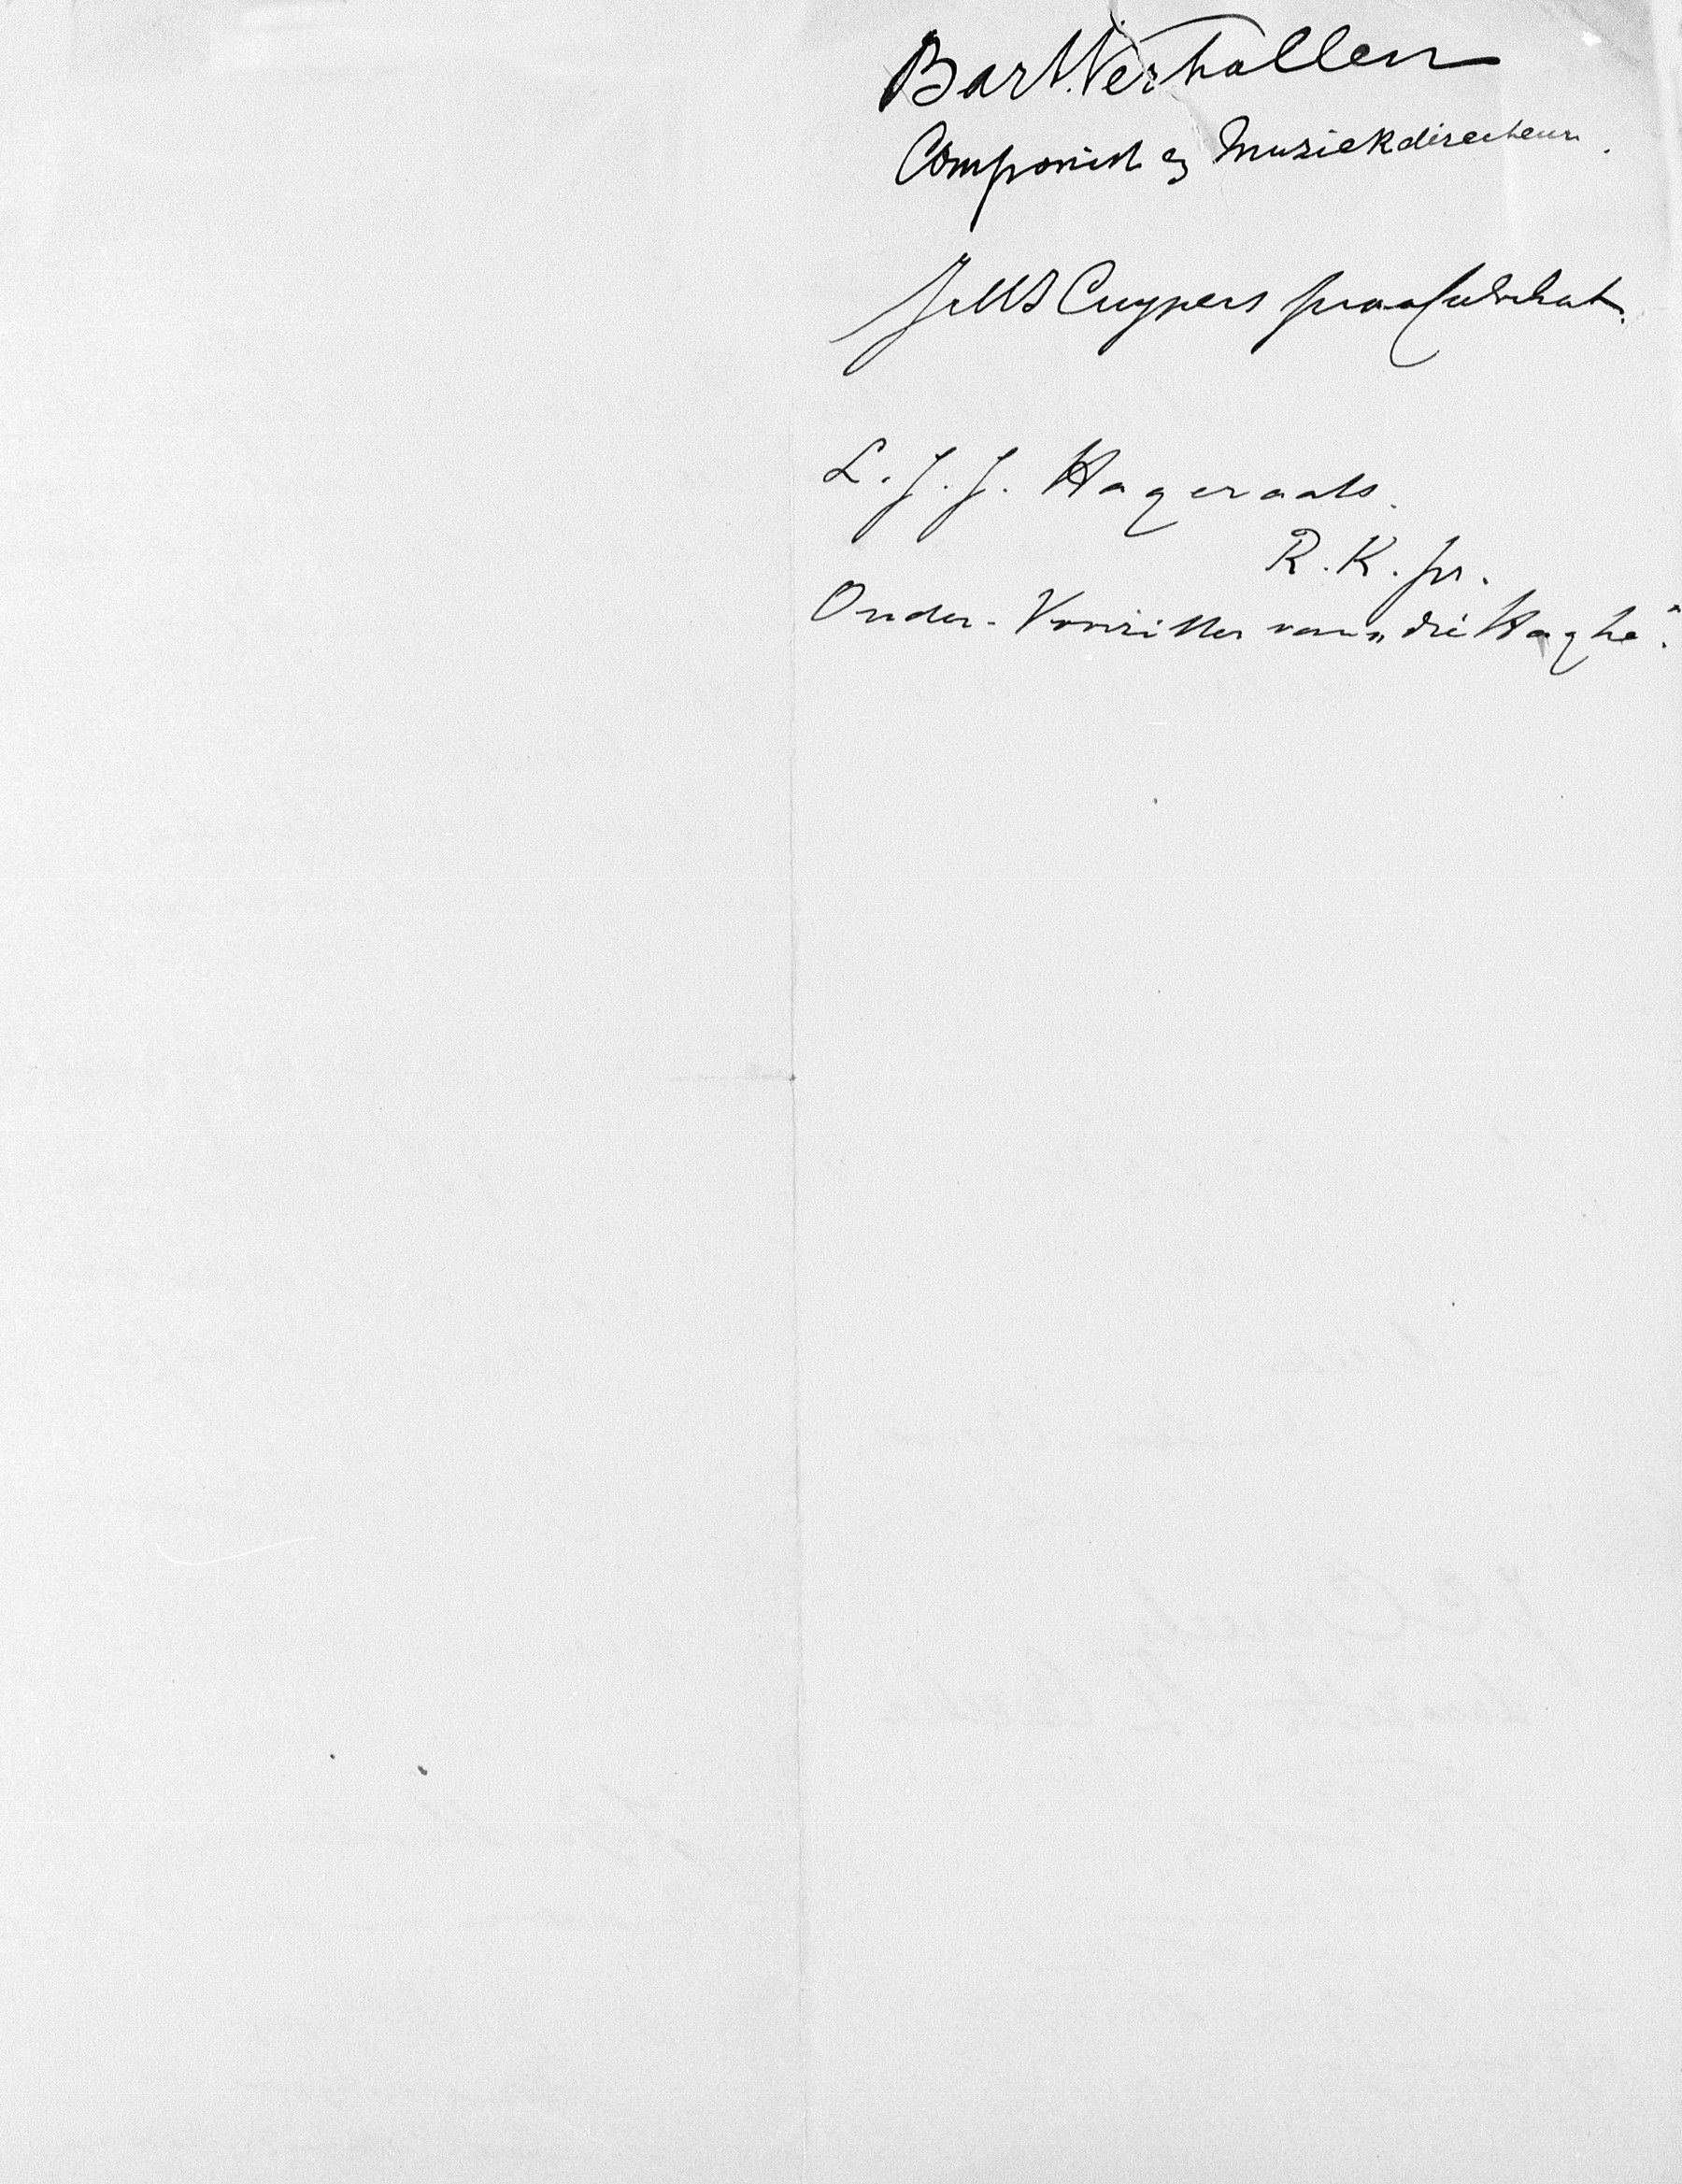 Bart. Verhallen
Componist en Muziekdirecteur.
Cuypers
L. J. J. Hageraats.
R. K. pr.
Onder-Voorzitter van „die Haghe".